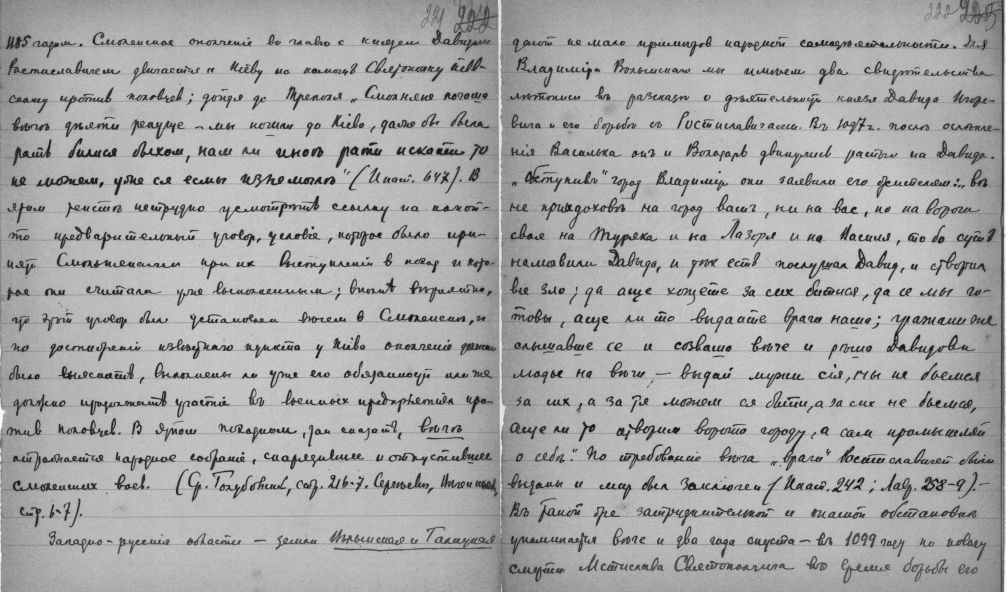 221 222
1185 годом. Смоленское ополчение во главе с князем Давидом
Ростиславичем двигается к Киеву на помощь Святославу Киев-
скому против половцев; дойдя до Треполя „Смолняне почаша
вѣче дѣяти рекуще – мы пошли до Кіева, даже бы была
рать билися быхом, нам ли иноѣ рати искати то
не можем, уже ся есмы изнемоглѣ" (Ипат. 647). В
этом тексте нетрудно усмотреть ссылку на какой-
то предварительный уговор, условіе, которое было при-
нято Смольнянами при их выступлении в поход и кото-
рое они считали уже выполненным; вполнѣ вѣроятно,
что этот уговор был установлен вѣчем в Смоленске, и
по достижении известнаго пункта у Кіева ополченіе должно
было выяснить, выполнены ли уже его обязанности или же
должно продолжать участіе въ военных предпріятіях про-
тив половцев. В этом походном, так сказать, вѣче
отражается народное собраніе, снарядившее и отпустившее
смоленских воев. (Ср. Голубовский, стр. 216-7. Сергеевич,
стр. 6-7).
Западно-русские области – земли Волынская и Галицкая
222 223
дают не мало примеров народной самодеятельности. Для
Владиміра Волынскаго мы имѣем два свидѣтельства
лѣтописи въ разсказѣ о дѣятельности князя Давида Игоре-
вича и его борьбы съ Ростиславичами. Въ 1097 г. послѣ ослѣпле-
нія Василька онъ и Володарь двинулись ратью на Давида.
„Обступивъ" город Владимір они заявили его жителям: „вѣ
не приидоховѣ на город вашъ, ни на вас, но на вороги
своя на Туряка и на Лазоря и на Василя, то бо суть
намолвили Давыда, и тѣх есть послушал Давид, и створил
все зло; да аще хощете за сих битися, да се мы го-
товы, а аще ли то выдайте враги наша; гражани же
слышавше се и созваша вѣче и рѣша Давидови
людье на вѣчи, – выдай мужи сія, мы не бьемся
за них, а за тя можем ся бити, а за сих не бьемся,
аще ли то отворим ворота городу, а сам промышляй
о себѣ." По требованію вѣча „враги" Ростиславичей были
выданы и мир был заключен (Ипат. 242; Лавр. 258-9). –
Въ такой же затруднительной и опасной обстановкѣ
упоминается вѣче и два года спустя – въ 1099 году по поводу
смерти Мстислава Святополчича въ время борьбы его